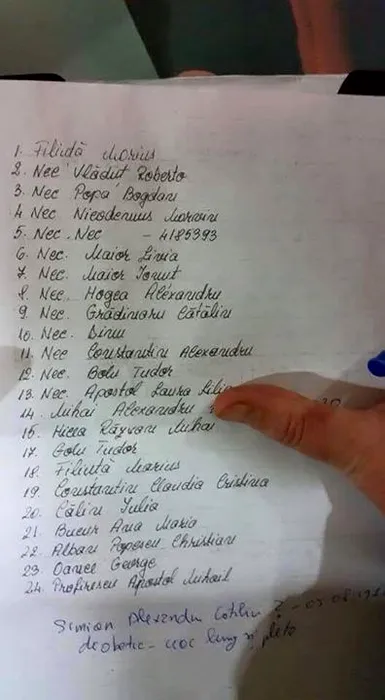 1. Filiuță Marius
2. Nec Vlăduț Roberto
3. Nec Popa Bogdan
4. Nec Nicodemus Marain
5. Nec. Nec - 4185393
6. Nec. Maior Livia
7. Nec. Maior Ionut
8. Nec. Hogea Alexandru
9. Nec. Grădinaru Cătălin
10. Nec. Dinu
11. Nec Constantin Alexandru
12. Nec. Golu Tudor
13. Nec. Apostol Laura Lilia
14. Mihai Alexandru
15. Răzvan Mihai
17. Golu Tudor
18. Filiuță Marius
19. Constantin Claudia Cristina
20. Călin Iulia
21. Bucur Ana Maria
22. Alban Popescu Christian
23. George
24. Profirescu Apostol Mihail
Simion Alexandru